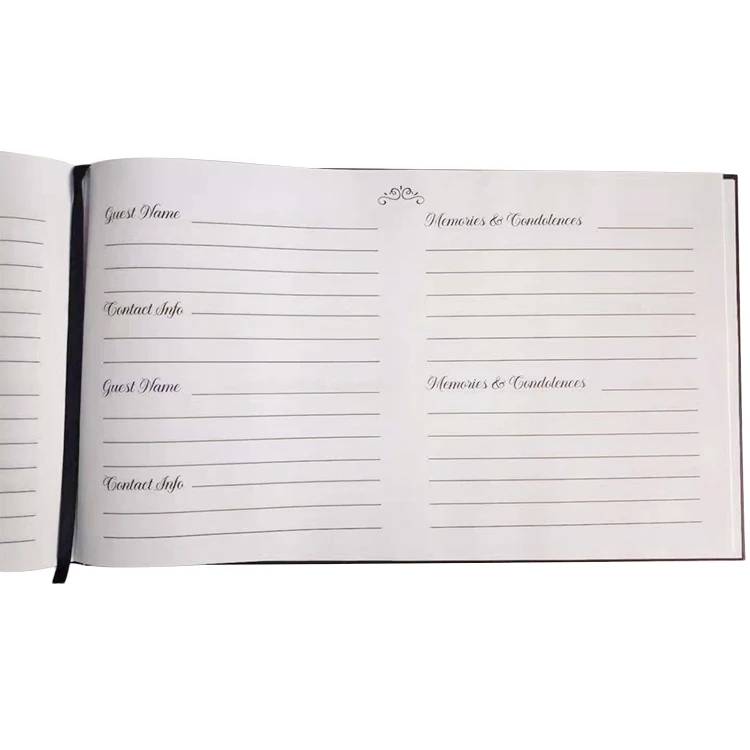 Guest Name
Contact Info
Guest Name
Contact Info
Memories & Condolences
Memories & Condolences